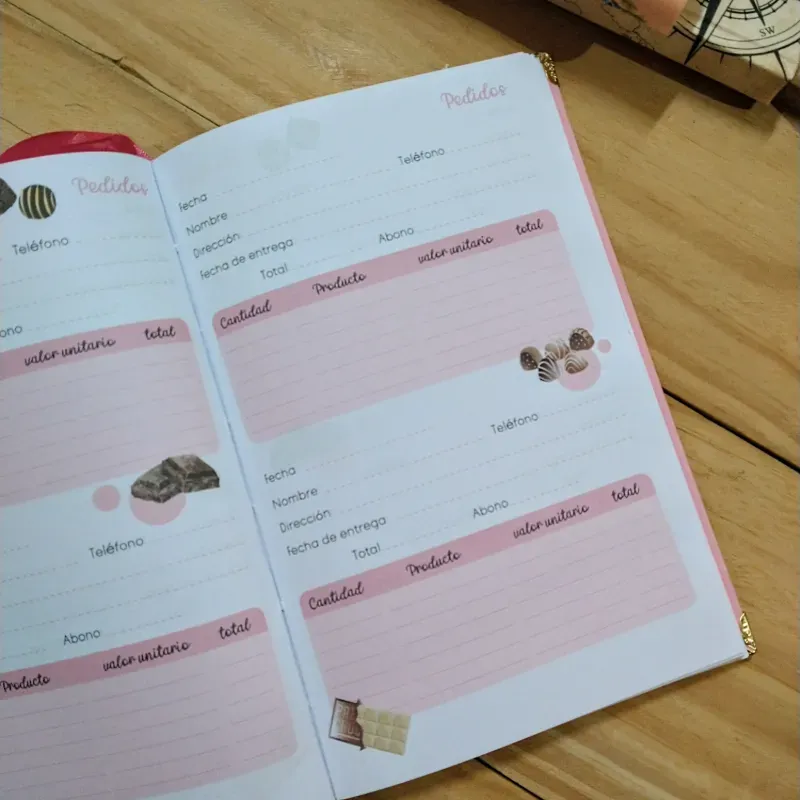 Pedidos
Teléfono
ono
valor unitario total
Teléfono
Abono
Producto valor unitario total
Pedidos
fecha Teléfono
Nombre
Dirección
fecha de entrega Abono
Total
Cantidad Producto valor unitario total
fecha Teléfono
Nombre
Dirección
fecha de entrega Abono
Total
Cantidad Producto valor unitario total
SW